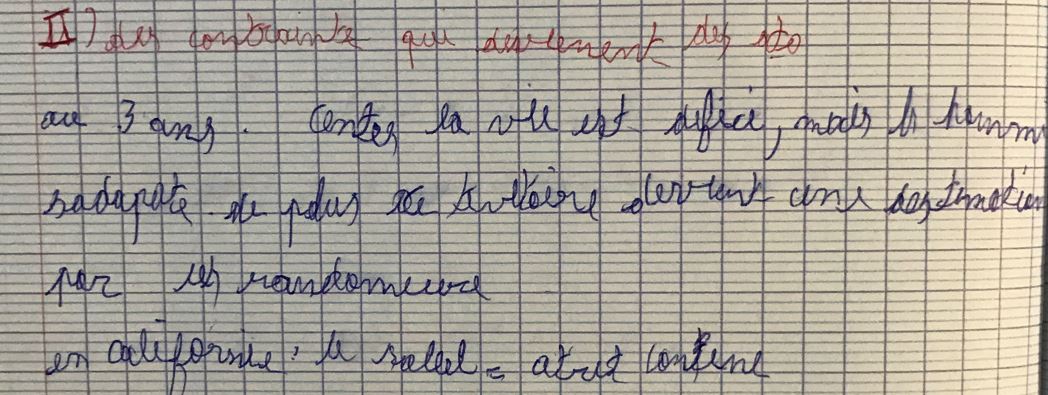 II) des contrainte qui deviennent des ato
au 3 ans. Certes la vie est dificil, mais l'homm
sadapate de plus ce territoire devient une destination
par les randoneure
en californie : le soleil = atout